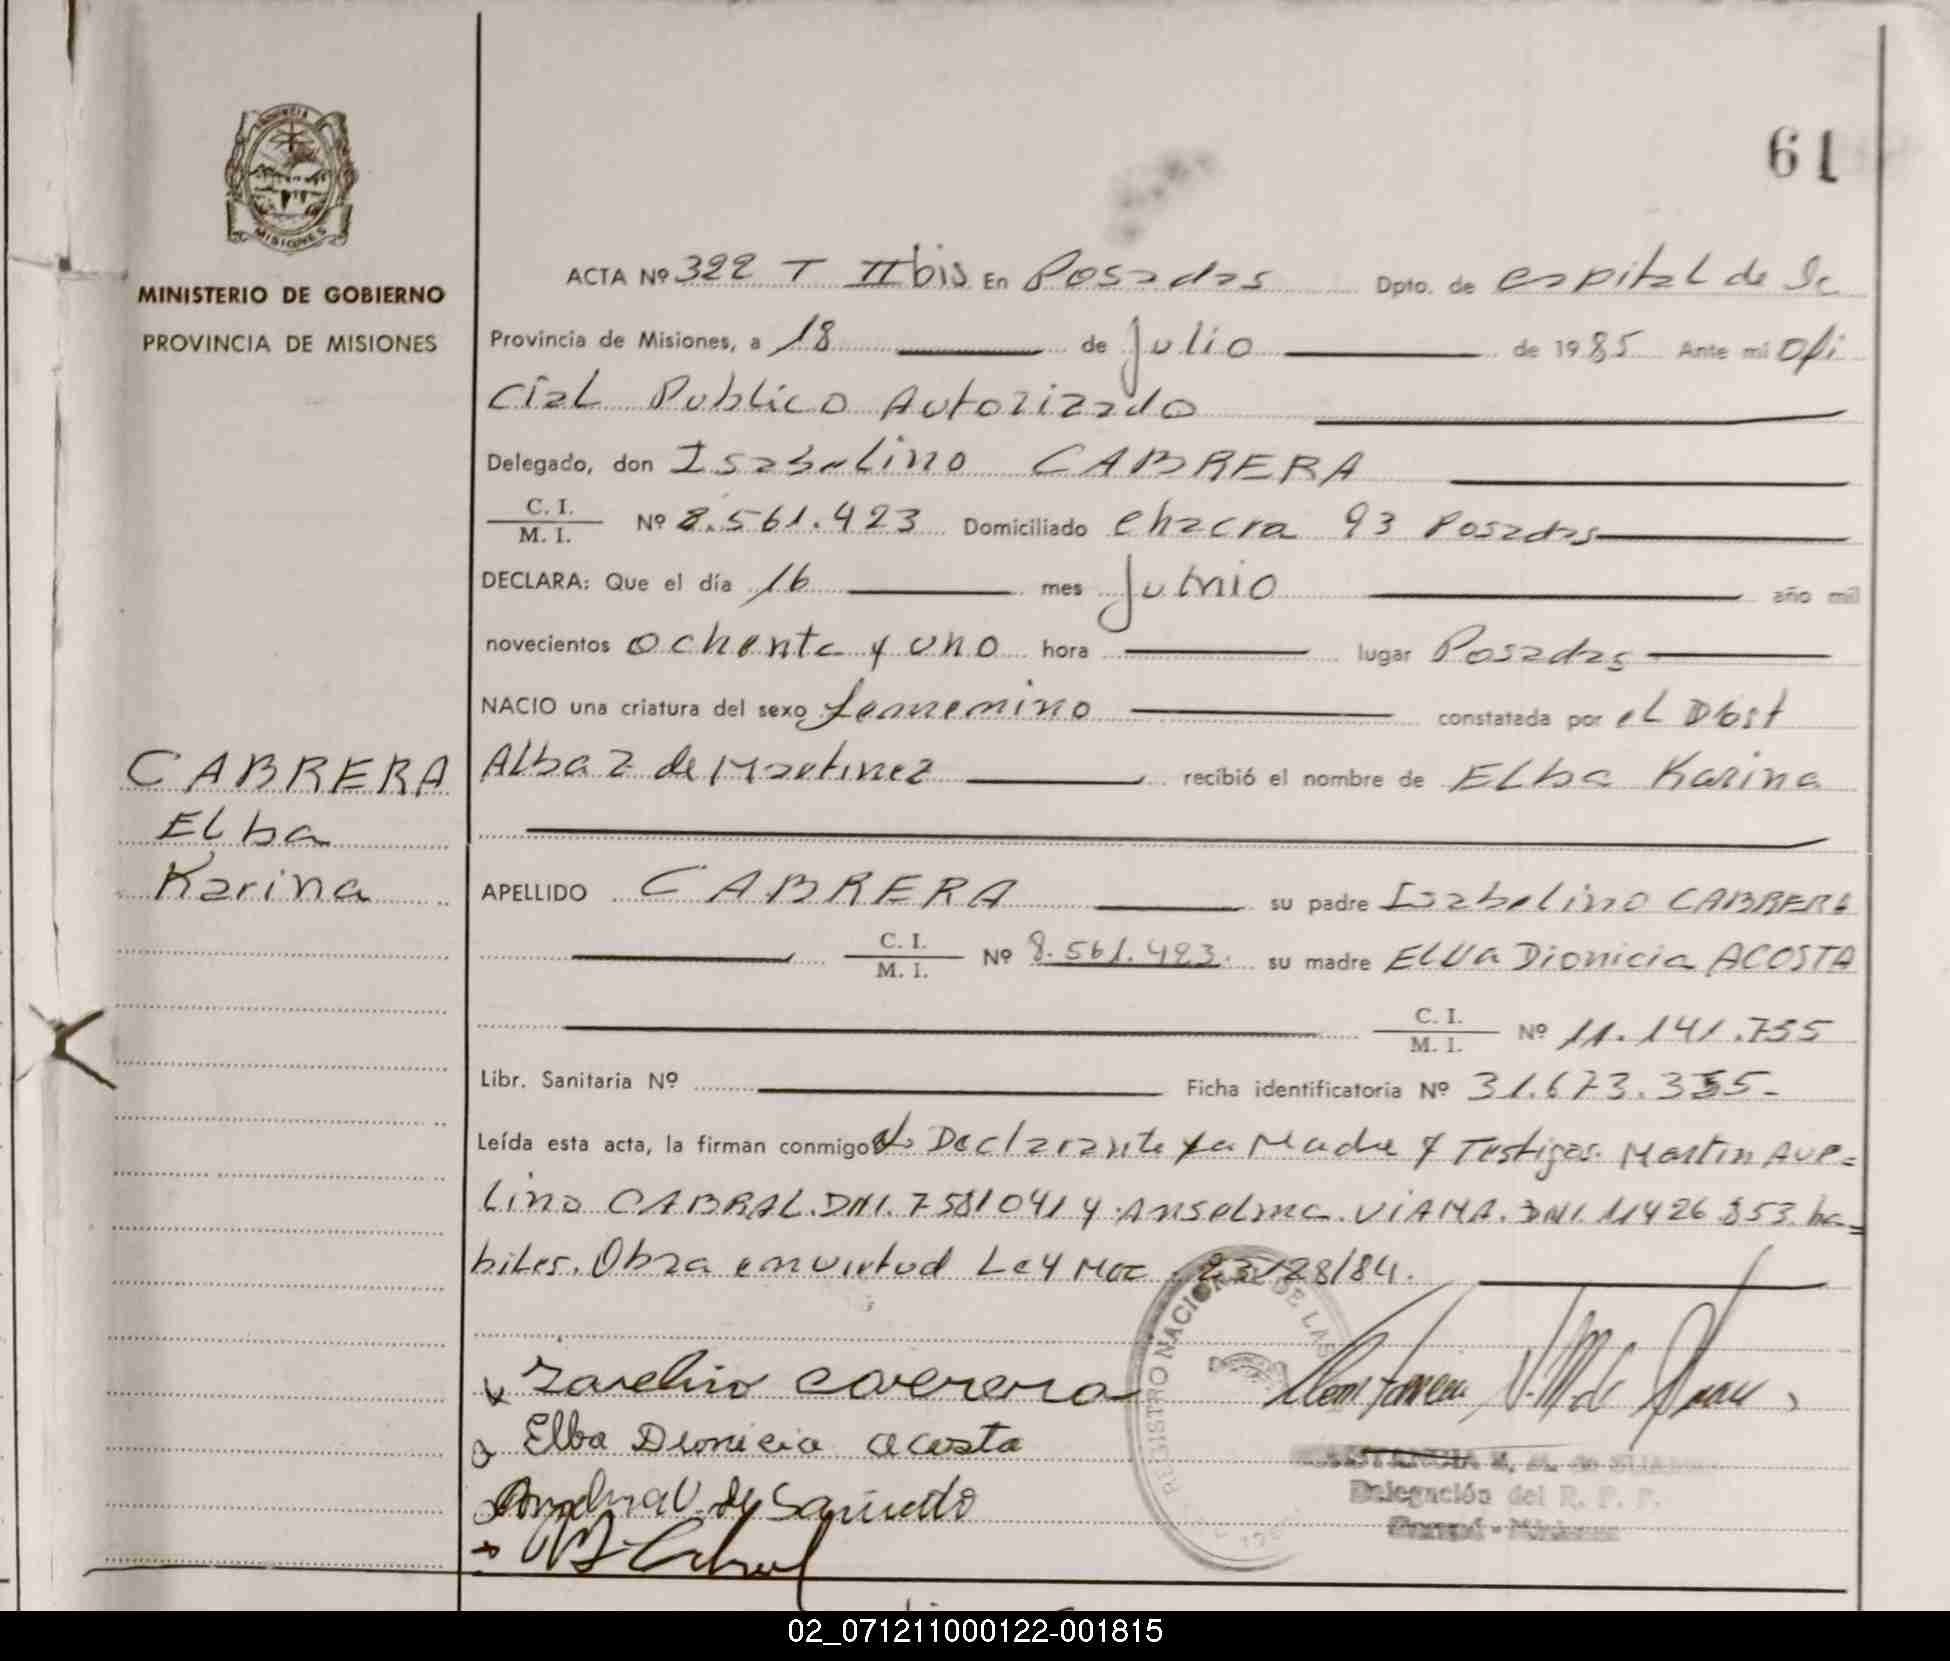 61
PROVINCIA
MISIONES
MINISTERIO DE GOBIERNO
PROVINCIA DE MISIONES
ACTA Nº 322 T II bis En Posadas Dpto. de capital de Sc
Provincia de Misiones, a 18 de Julio de 1985 Ante mi Ofi
cial Publico Autorizado
Delegado, don Isabelino CABRERA
C. I.
M. I. Nº 8.561.423 Domiciliado Chacra 93 Posadas
DECLARA: Que el día 16 mes Junio año mil
novecientos ochenta y uno hora lugar Posadas
NACIO una criatura del sexo femenino constatada por el Obst
Alba Z de Martinez recibió el nombre de Elba Karina
CABRERA
Elba
Karina
APELLIDO CABRERA su padre Isabelino CABRERA
C. I.
M. I. Nº 8.561.423. su madre Elva Dionicia ACOSTA
C. I.
M. I. Nº 11.141.755
Libr. Sanitaria Nº Ficha identificatoria Nº 31.673.355-
Leída esta acta, la firman conmigo el Declarante la Madre y Testigos. Martin Ave=
lino CABRAL. DNI. 7581041 y Anselma VIANA. DNI. 11426853 ha=
biles. Obra en virtud Ley Nac. 23/28/84.
REGISTRO NACIONAL DE LAS
Elba Dionicia acosta
V. M. de
Delegación del R. P. P.
02_071211000122-001815